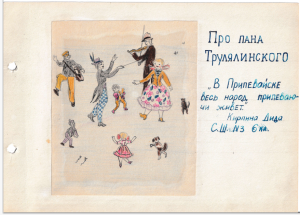 Про пана
Трулялинского
„В Припевайске
весь народ припеваю-
чи живет.
Кирпина Лида
С.Ш. №3 6 кл.